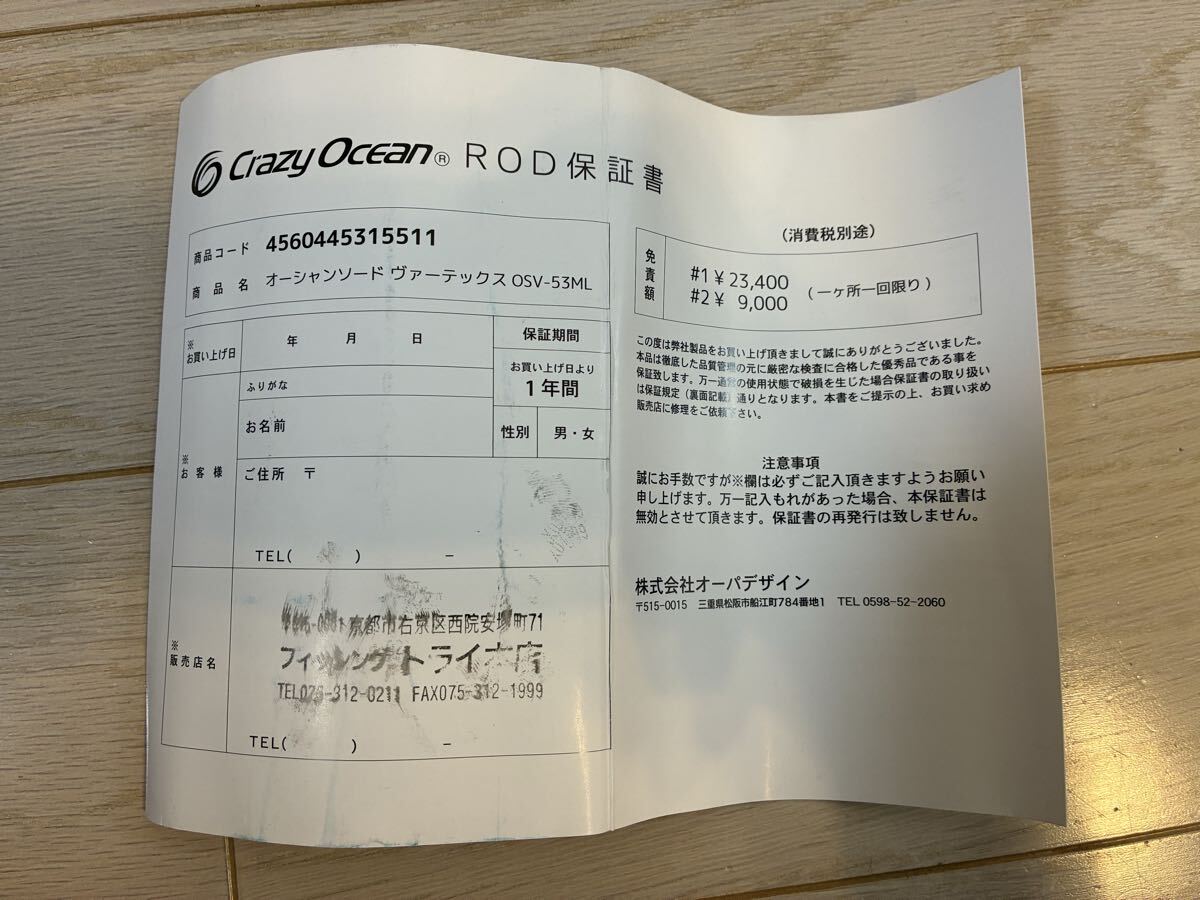 Crazy Ocean® ROD保証書
商品コード 4560445315511
商品名 オーシャンソード ヴァーテックス OSV-53ML
※
お買い上げ日
年 月 日
保証期間
お買い上げ日より
1年間
※
お客様
ふりがな
お名前
性別 男・女
ご住所 〒
TEL( ) −
※
販売店名
京都市右京区西院安塚町71
フィッシングトライ本店
TEL075-312-0211 FAX075-312-1999
TEL( ) −
(消費税別途)
免責額
#1 ¥ 23,400
#2 ¥ 9,000
(一ヶ所一回限り)
この度は弊社製品をお買い上げ頂きまして誠にありがとうございました。
本品は徹底した品質管理の元に厳密な検査に合格した優秀品である事を
保証致します。万一通常の使用状態で破損を生じた場合保証書の取り扱い
は保証規定(裏面記載)通りとなります。本書をご提示の上、お買い求め
販売店に修理をご依頼下さい。
注意事項
誠にお手数ですが※欄は必ずご記入頂きますようお願い
申し上げます。万一記入もれがあった場合、本保証書は
無効とさせて頂きます。保証書の再発行は致しません。
株式会社オーパデザイン
〒515-0015 三重県松阪市船江町784番地1 TEL 0598-52-2060